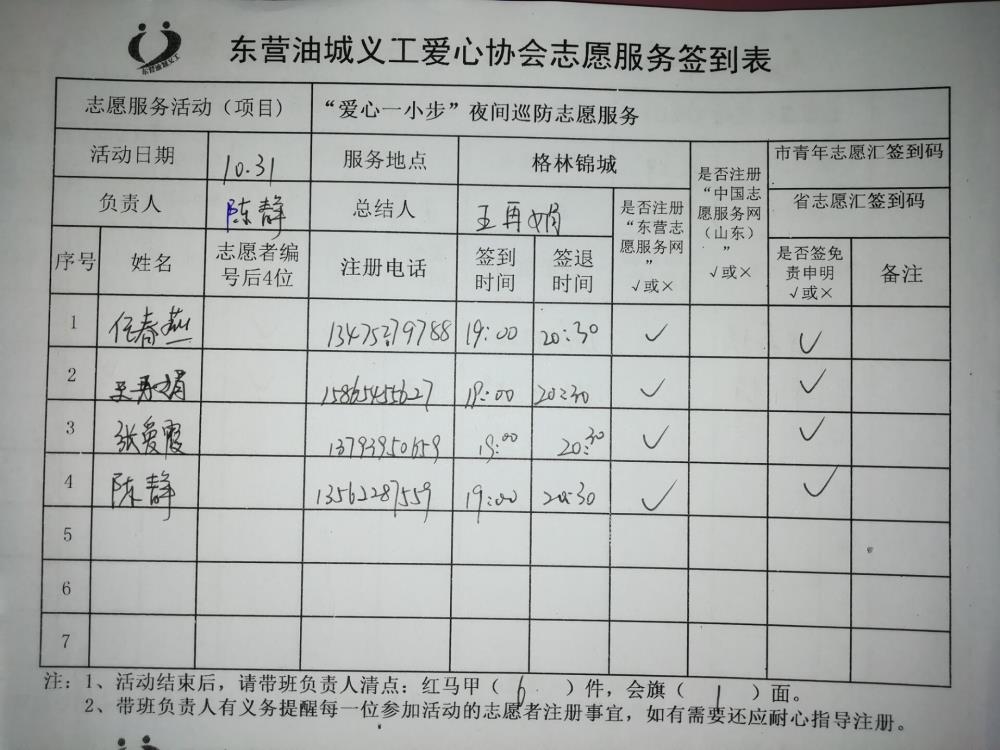 东营油城义工
东营油城义工爱心协会志愿服务签到表
志愿服务活动（项目） “爱心一小步”夜间巡防志愿服务
活动日期 10.31 服务地点 格林锦城 是否注册“中国志愿服务网（山东）” √或× 市青年志愿汇签到码
负责人 陈静 总结人 王再娟 是否注册“东营志愿服务网” √或× 省志愿汇签到码
序号 姓名 志愿者编号后4位 注册电话 签到时间 签退时间 是否签免责申明 √或× 备注
1 任春燕 13475279788 19:00 20:30 ✓ ✓
2 王再娟 15865455627 19:00 20:30 ✓ ✓
3 张爱霞 13793950659 19:00 20:30 ✓ ✓
4 陈静 13562287559 19:00 20:30 ✓ ✓
5
6
7
注：1、活动结束后，请带班负责人清点：红马甲（ 6 ）件，会旗（ 1 ）面。
2、带班负责人有义务提醒每一位参加活动的志愿者注册事宜，如有需要还应耐心指导注册。